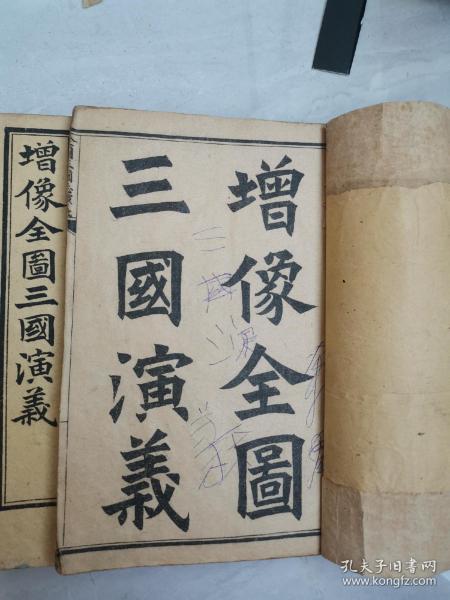 增像全圖
三國演義
三國演義
增像全圖三國演義
孔夫子旧书网
www.kongfz.com